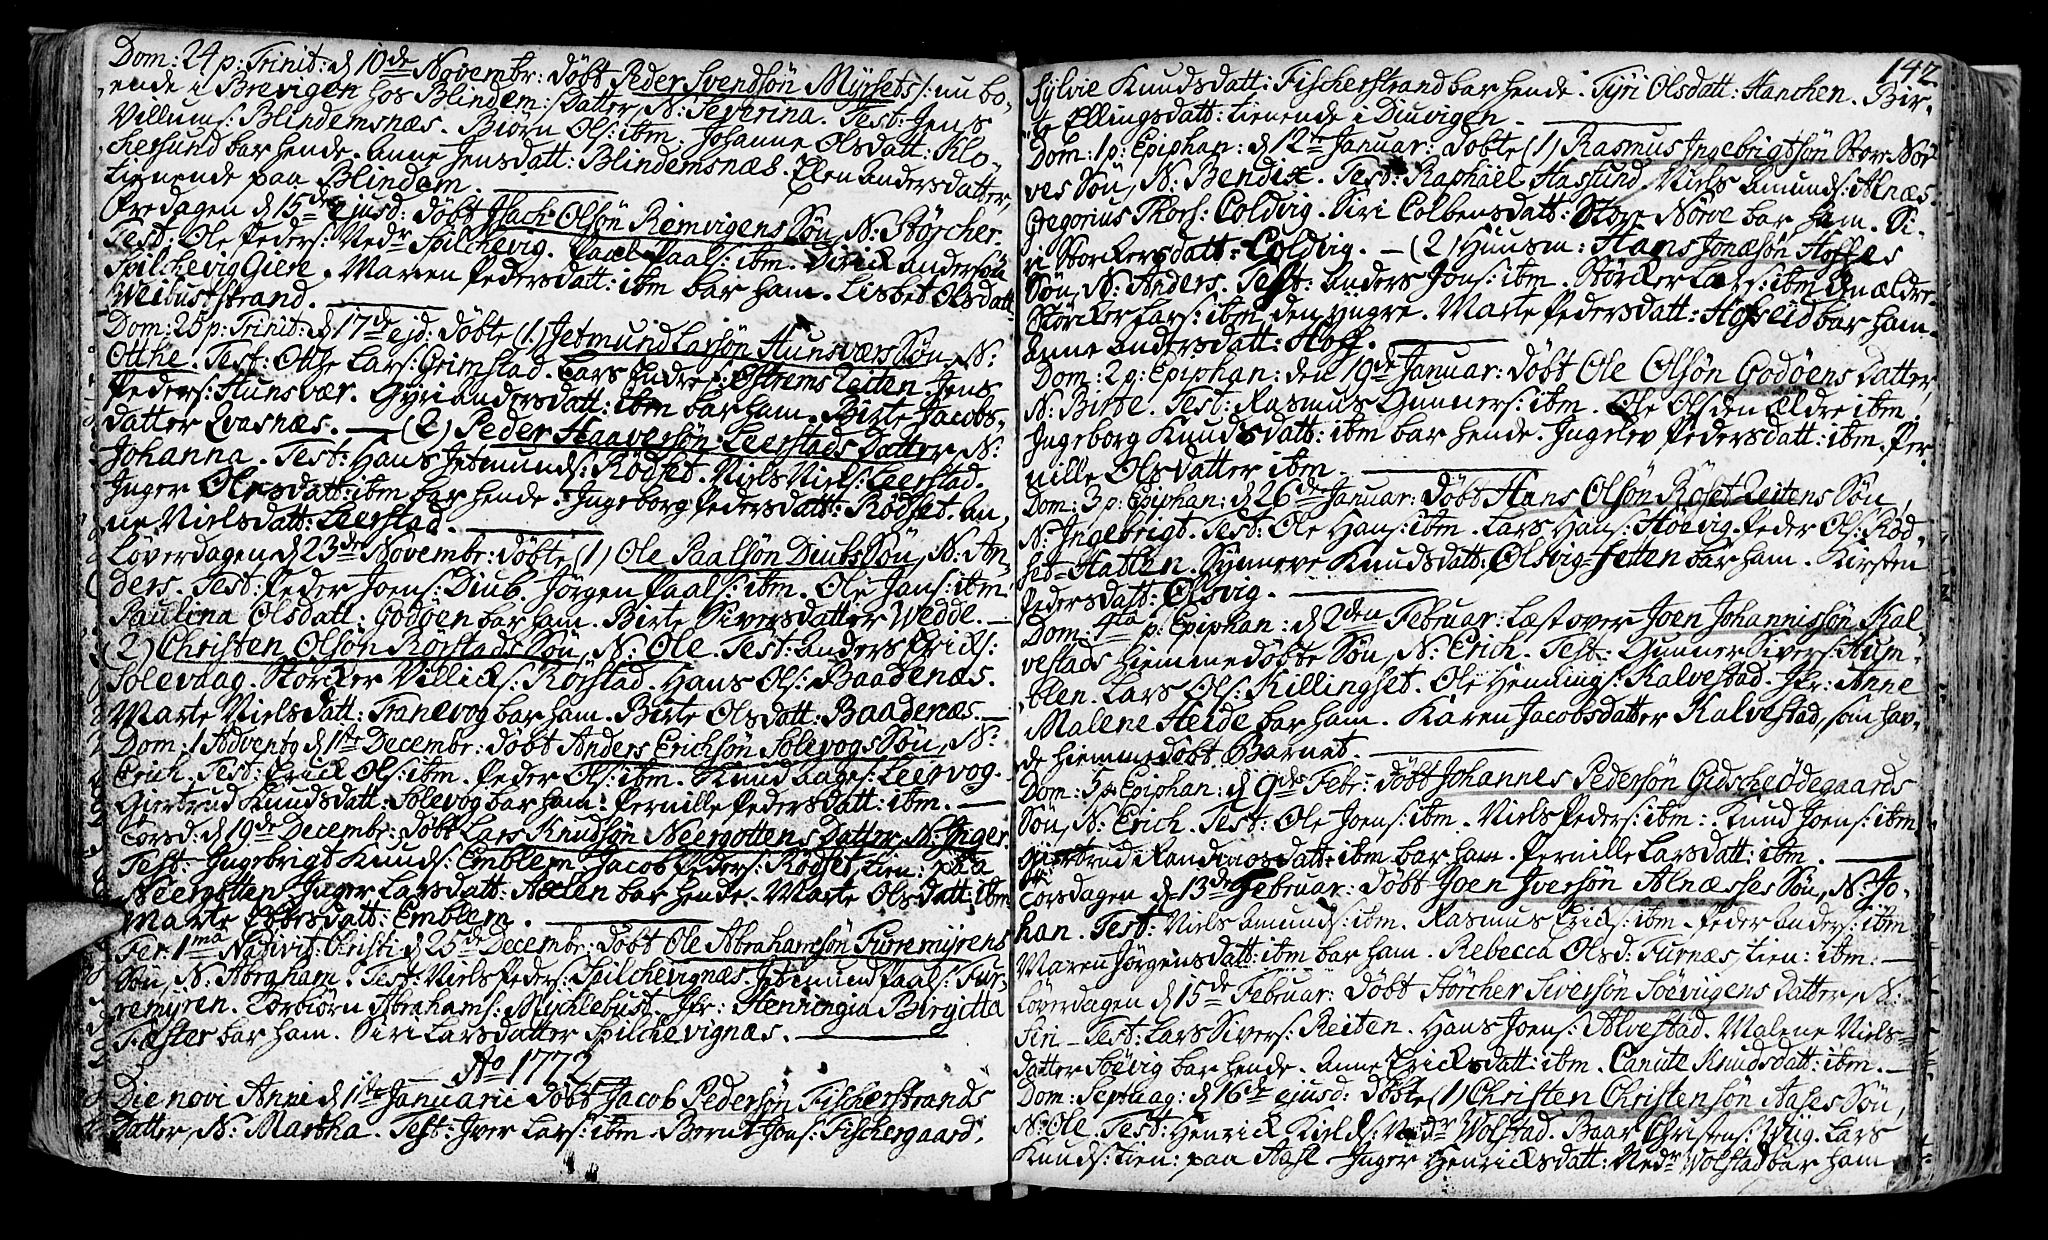 Dom: 24 p: Trinit: d 10de Novembr: døbt Peder Svendsøn Myrsets /: nu bo-
ende i Brevigen hos Blindem :/ Datter, N: Severina. Test: Jens
Villums: Blindemsnæs. Biørn Ols: ibm. Johanne Olsdatt: Klo-
chersund bar hende. Anne Jensdatt: Blindemsnæs. Elen Andersdatter,
tienende paa Blindem.
Fredagen d 15de ejusd: døbt Isach Olsøn Remvigens Søn, N: Størcher.
Test: Ole Peders: Nedr Spilchevig. Paal Paals: ibm. Dirick Andersøn
Spilchevig Giere. Maren Pedersdatt: ibm bar ham. Lisbet Olsdatt:
Weibuststrand.
Dom: 25 p: Trinit: d 17de ejd: døbte (1) Jetmund Larsøn Hunsværs Søn, N:
Otthe. Test: Otthe Lars: Grimstad. Lars Endres: Østrems Reiten. Jens
Peders: Hunsvær. Gyri Andersdatt: ibm bar ham. Birte Jacobs-
datter Qvasnæs. — (2) Peder Haaversøn Leerstads Datter, N:
Johanna. Test: Hans Jetmunds: Rødset. Niels Niels: Leerstad.
Inger Olasdatt: ibm bar hende. Ingeborg Pedersdatt: Rødset. An-
ne Nielsdatt: Leerstad.
Løverdagen d 23de Novembr: døbte (1) Ole Paalsøn Diubs Søn, N: An-
ders. Test: Peder Joens: Diub. Jørgen Paals: ibm. Ole Jans: ibm.
Paulina Olsdatt: Godøen bar ham. Birte Siversdatter Wedde. —
(2) Christen Olsøn Rørstads Søn, N: Ole. Test: Anders Erichs:
Solevaag. Størcker Villicks: Rørstad. Hans Ols: Baadenæs.
Marte Nielsdatt: Tranevog bar ham. Birte Olsdatt: Baadenæs. —
Dom: 1 Advent9 d 1ste Decembr: døbt Anders Erichsøn Solevogs Søn, N:
Erich. Test: Erick Ols: ibm. Peder Ols: ibm. Knud Lages: Leervog.
Giertrud Knudsdatt: Solevog bar ham. Pernille Pedersdatt: ibm. —
Torsd: d 19de Decembr: døbt Lars Knudsøn Neergottens Datter, N: Inger.
Test: Ingebrigt Knuds: Emblem. Jacob Peders: Rødset tien: paa
Neergotten. Inger Larsdatt: Aaelen bar hende. Marte Olsdatt: ibm
Marte Ebbesdatt: Emblem.
Fer: 1ma Nativit: Christi d 25de Decembr: døbt Ole Abrahamsøn Furremyrens
Søn, N: Abraham. Test: Niels Peders: Spilchevignæs. Jetmund Paals: Fur-
remyren. Torbiørn Abrahams: Myhlebust. Jfr: Henningia Birgitta
Fæster bar ham. Siri Larsdatter Spilchevignæs.
Ao 1772
Die novi Anni d 1ste Januarii døbt Jacob Pedersøn Fischerstrands
Datter, N: Martha. Test: Iver Lars: ibm. Bernt Jons: Fischergaard.
142
Sylvie Knudsdatt: Fischerstrand bar hende. Tyri Olsdatt: Hanchen. Bir-
te Ellingsdatt: tienende i Diuvigen.
Dom: 1 p: Epiphan: d 12te Januar: døbte (1) Rasmus Ingebrigtsøn Store Nør
ves Søn, N: Bendix. Test: Raphael Hasund. Niels Amunds: Alnæs.
Gregorius Thors: Coldvig. Siri Colbensdatt: Store Nørve bar ham. Si-
ri Storckersdatt: Coldvig. — (2) Huusm: Hans Jonæsøn Hoffes
Søn, N: Anders. Test: Anders Jons: ibm. Størcker Lars: ibm den ældre.
Størcker Lars: ibm den yngre. Marte Pedersdatt: Hofseid bar ham.
Anne Andersdatt: Hoff.
Dom: 2 p: Epiphan: den 19de Januar: døbt Ole Olsøn Godøens Datter,
N: Birte. Test: Rasmus Gunners: ibm. Ole Ols den Ældre ibm.
Ingeborg Knudsdatt: ibm bar hende. Ingelev Pedersdatt: ibm. Per-
nille Olsdatter ibm.
Dom: 3 p: Epiphan: d 26de Januar: døbt Hans Olsøn Røset Reitens Søn,
N: Ingebrigt. Test: Ole Hans: ibm. Lars Hans: Høevig. Peder Ols: Rød-
set-Hatlen. Synneve Knudsdatt: Olsvig-Jetten bar ham. Kirsten
Pedersdatt: Olsvig.
Dom: 4ta p: Epiphan: d 2den Februar: Læst over Joen Johannissøn Kal
vestads hiemmedøbte Søn, N: Erich. Test: Gunner Sivers: Hum-
blen. Lars Ols: Killingset. Ole Hennings: Kalvestad. Jfr: Anne
Malene Heide bar ham. Karen Jacobsdatter Kalvestad, som hav-
de hiemmedøbt Barnet.
Dom: 5 p: Epiphan: d 9de Febr: døbt Johannes Pedersøn Gidsche Ødegaards
Søn, N: Erich. Test: Ole Joens: ibm. Niels Peders: ibm: Knud Joens: ibm
Giertrud Randinasdatt: ibm bar ham. Pernille Larsdatt: ibm.
Torsdagen d 13de Februar: døbt Joen Iversøn Alnæsses Søn, N: Jo-
han. Test: Niels Amunds: ibm. Rasmus Ericks: ibm. Peder Anders: ibm
Maren Jørgensdatt: ibm bar ham. Rebecca Olsd: Furnæs, tien: ibm: —
Løverdagen d 15de Februar: døbt Størcher Siversøn Søevigens Datter, N:
Siri - Test: Lars Sivers: Reiten. Hans Joens: Alvestad. Malene Niels-
datter Søevig bar hende. Anne Ericksdatt: ibm. Canute Knudsdatt: ibm. —
Dom: Septuag: d 16de ejusd: døbte (1) Christen Christensøn Aases Søn,
N: Ole. Test: Henrick Kields: Nedr Wolstad. Baar Christens: Wiig. Lars
Knuds: tien: paa Aase. Inger Henricksdatt: Nedr Wolstad bar ham